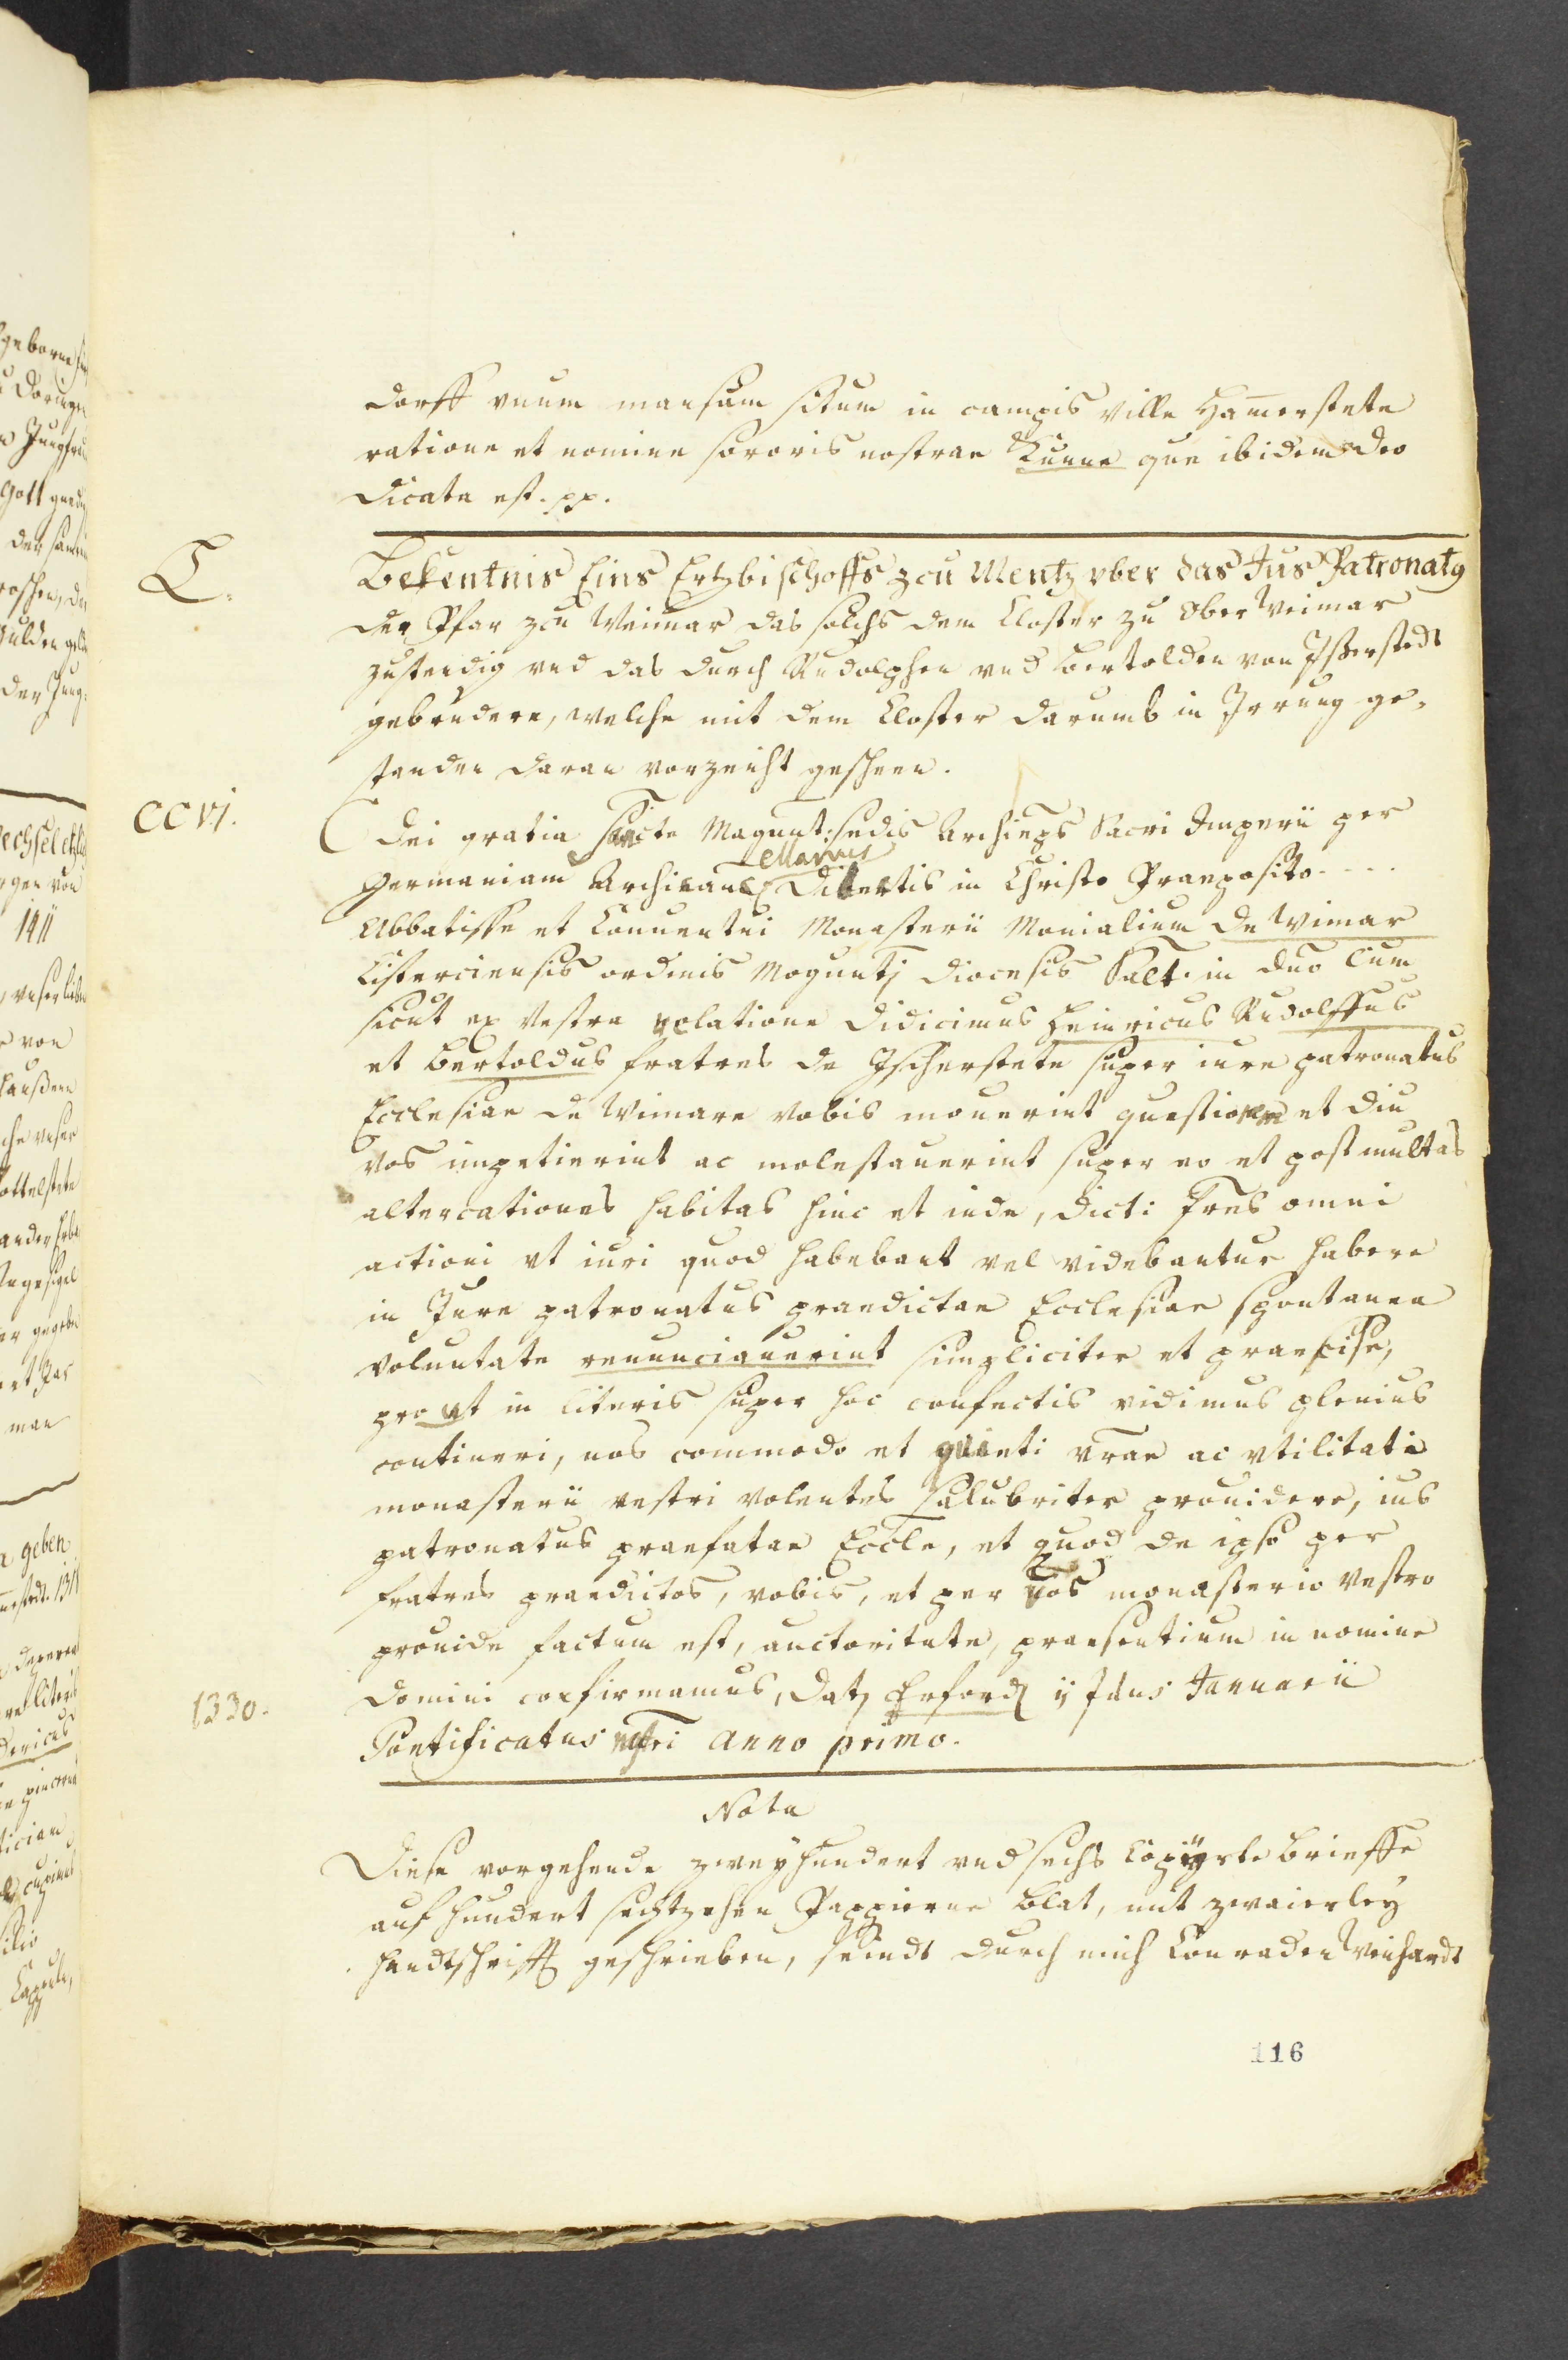 dorff vnum mansum situm in campis ville Ham̄erstete
ratione et nomine sororis nostrae Kunne que ibidem deo
dicata est. pp.
C.
Bekentnis Eins Ertzbischoffs zcu Mentz vber das Jus Patronatg
der Pfar zcu Weimar das solchs dem Closter zu Ober Weimar
zustendig vnd das durch Rudolphen vnd Bertolden von Isserstedt
gebrudere, welche mit dem Closter darumb in Irrung ge-
standen daran vorzeicht gescheen.
CCVI.
Dei gratia Sancte Magunt: sedis Archieps Sacri Imperii per
ellarius
Germaniam Archicanc Dilectis in Christo Praeposito - - - -
Abbatisse et Conuentui Monasterii Monialium de Wimar
Cisterciensis ordinis Moguntj diocesis Salt. in duo Cum
sicut ex vestra relatione didicimus Heinricus Rudolffus
et Bertoldus fratres de Ischerstete super iure patronatus
Ecclesiae de Wimare vobis mouerint questionem et diu
vos impetierint ac molestauerint super eo et post multas
altercationes habitas hinc et inde, dicti fres omni
actioni et iuri quod habebant vel videbantur habere
in Jure patronatus praedictae Ecclesiae spontanea
voluntate renunciauerint simpliciter et praecise,
pro ut in literis super hoc confectis vidimus plenius
contineri, nos commodo et quieti vrae ac vtilitati
monasterii vestri volentes salubriter prouidere, ius
patronatus praefatae Eccle, et quod de ipso per
fratres praedictos, vobis, et per vos monasterio vestro
prouide factum est, auctoritate, praesentium in nomine
1330.
Domini confirmamus, Datj Erford ij Idus Januarii
Pontificatus nostri Anno primo.
Nota
Diese vorgehende zweyhundert vnd sechs Copiyrte brieffe
auf hundert sechtzehen Pappierne Blat, mit zwaierley
handtschrifft geschrieben, seindt durch mich Conraden Weichardt
116